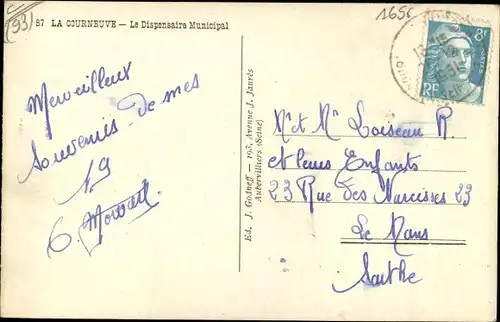 (93)
87 LA COURNEUVE — Le Dispensaire Municipal
1656
8F
RF
Merveilleux
souvenirs de mes
Ed. J. Godneff — 193, Avenue J. Jaurès
Aubervilliers (Seine)
Mr et Me Loiseau R.
et leurs Enfants
23 Rue des Narcisses 23
Le Mans
Sarthe